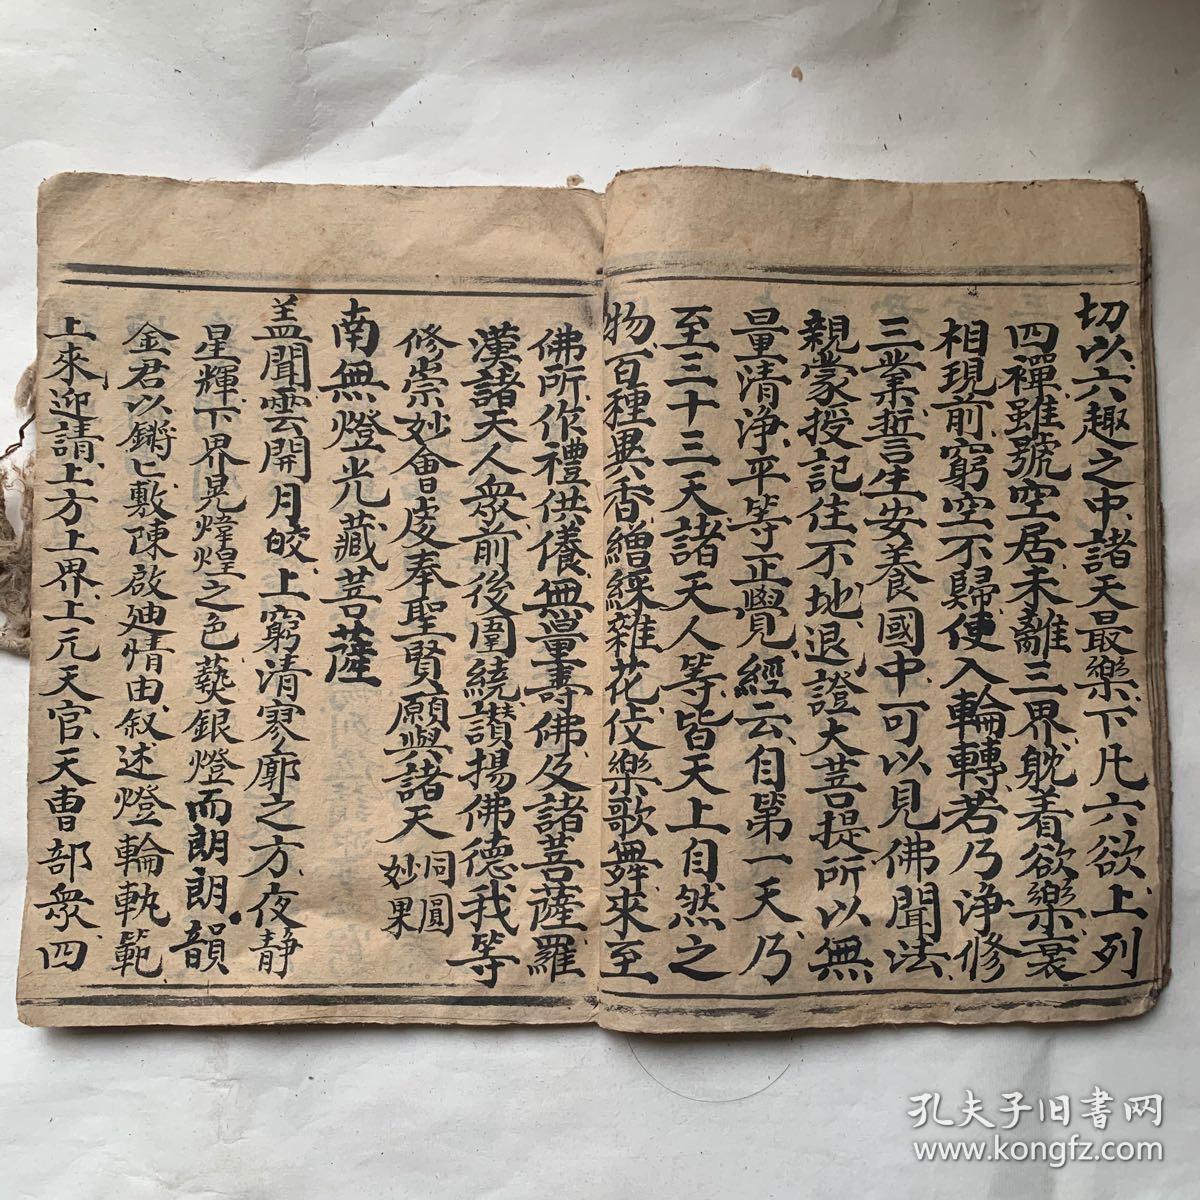 切以六趣之中諸天最樂下凡六欲上列
四禪雖號空居未離三界躭着欲樂衰
相現前窮空不歸使入輪轉若乃淨修
三業誓生安養國中可以見佛聞法
親蒙授記住不地退證大菩提所以無
量清净平等正覺經云自第一天乃
至三十三天諸天人等皆天上自然之
物百種異香繒綵雜花伎樂歌舞來至
佛所作禮供養無量壽佛及諸菩薩羅
漢諸天人衆前後圍繞讃揚佛德我等
修崇妙會虔奉聖賢願與諸天同圓妙果
南無燈光藏菩薩
盖聞雲開月皎上窮清寥廓之方夜静
星輝下界晃煒煌之色爇銀燈而朗朗韻
金君以鏘匕敷陳啟廸情由叙述燈輪執範
上來迎請上方上界上元天官天曹部衆四
孔夫子旧书网
www.kongfz.com